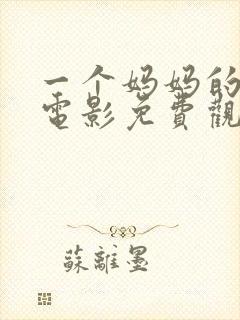 一个妈妈的
電影免費觀
蘇離墨